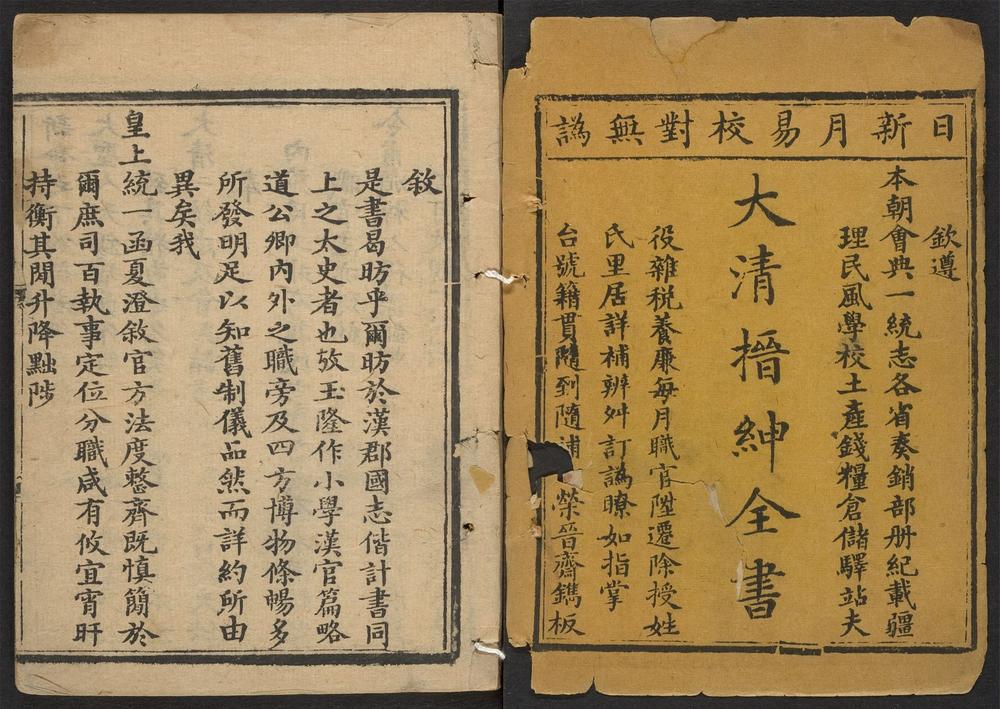 日新月易校對無譌
欽遵
本朝會典一統志各省奏銷部册紀載疆
理民風學校土產錢糧倉儲驛站夫
大清搢紳全書
役雜税養廉每月職官陞遷除授姓
氏里居詳補辨舛訂譌瞭如指掌
台號籍貫隨到隨浦榮晉齋鐫板
敘
是書曷昉乎爾昉於漢郡國志偕計書同
上之太史者也攷玉隆作小學漢官篇略
道公卿內外之職旁及四方博物條暢多
所發明足以知舊制儀品然而詳約所由
異矣我
皇上統一函夏澄敘官方法度整齊既慎簡於
爾庶司百執事定位分職咸有攸宜宵旰
持衡其閒升降黜陟